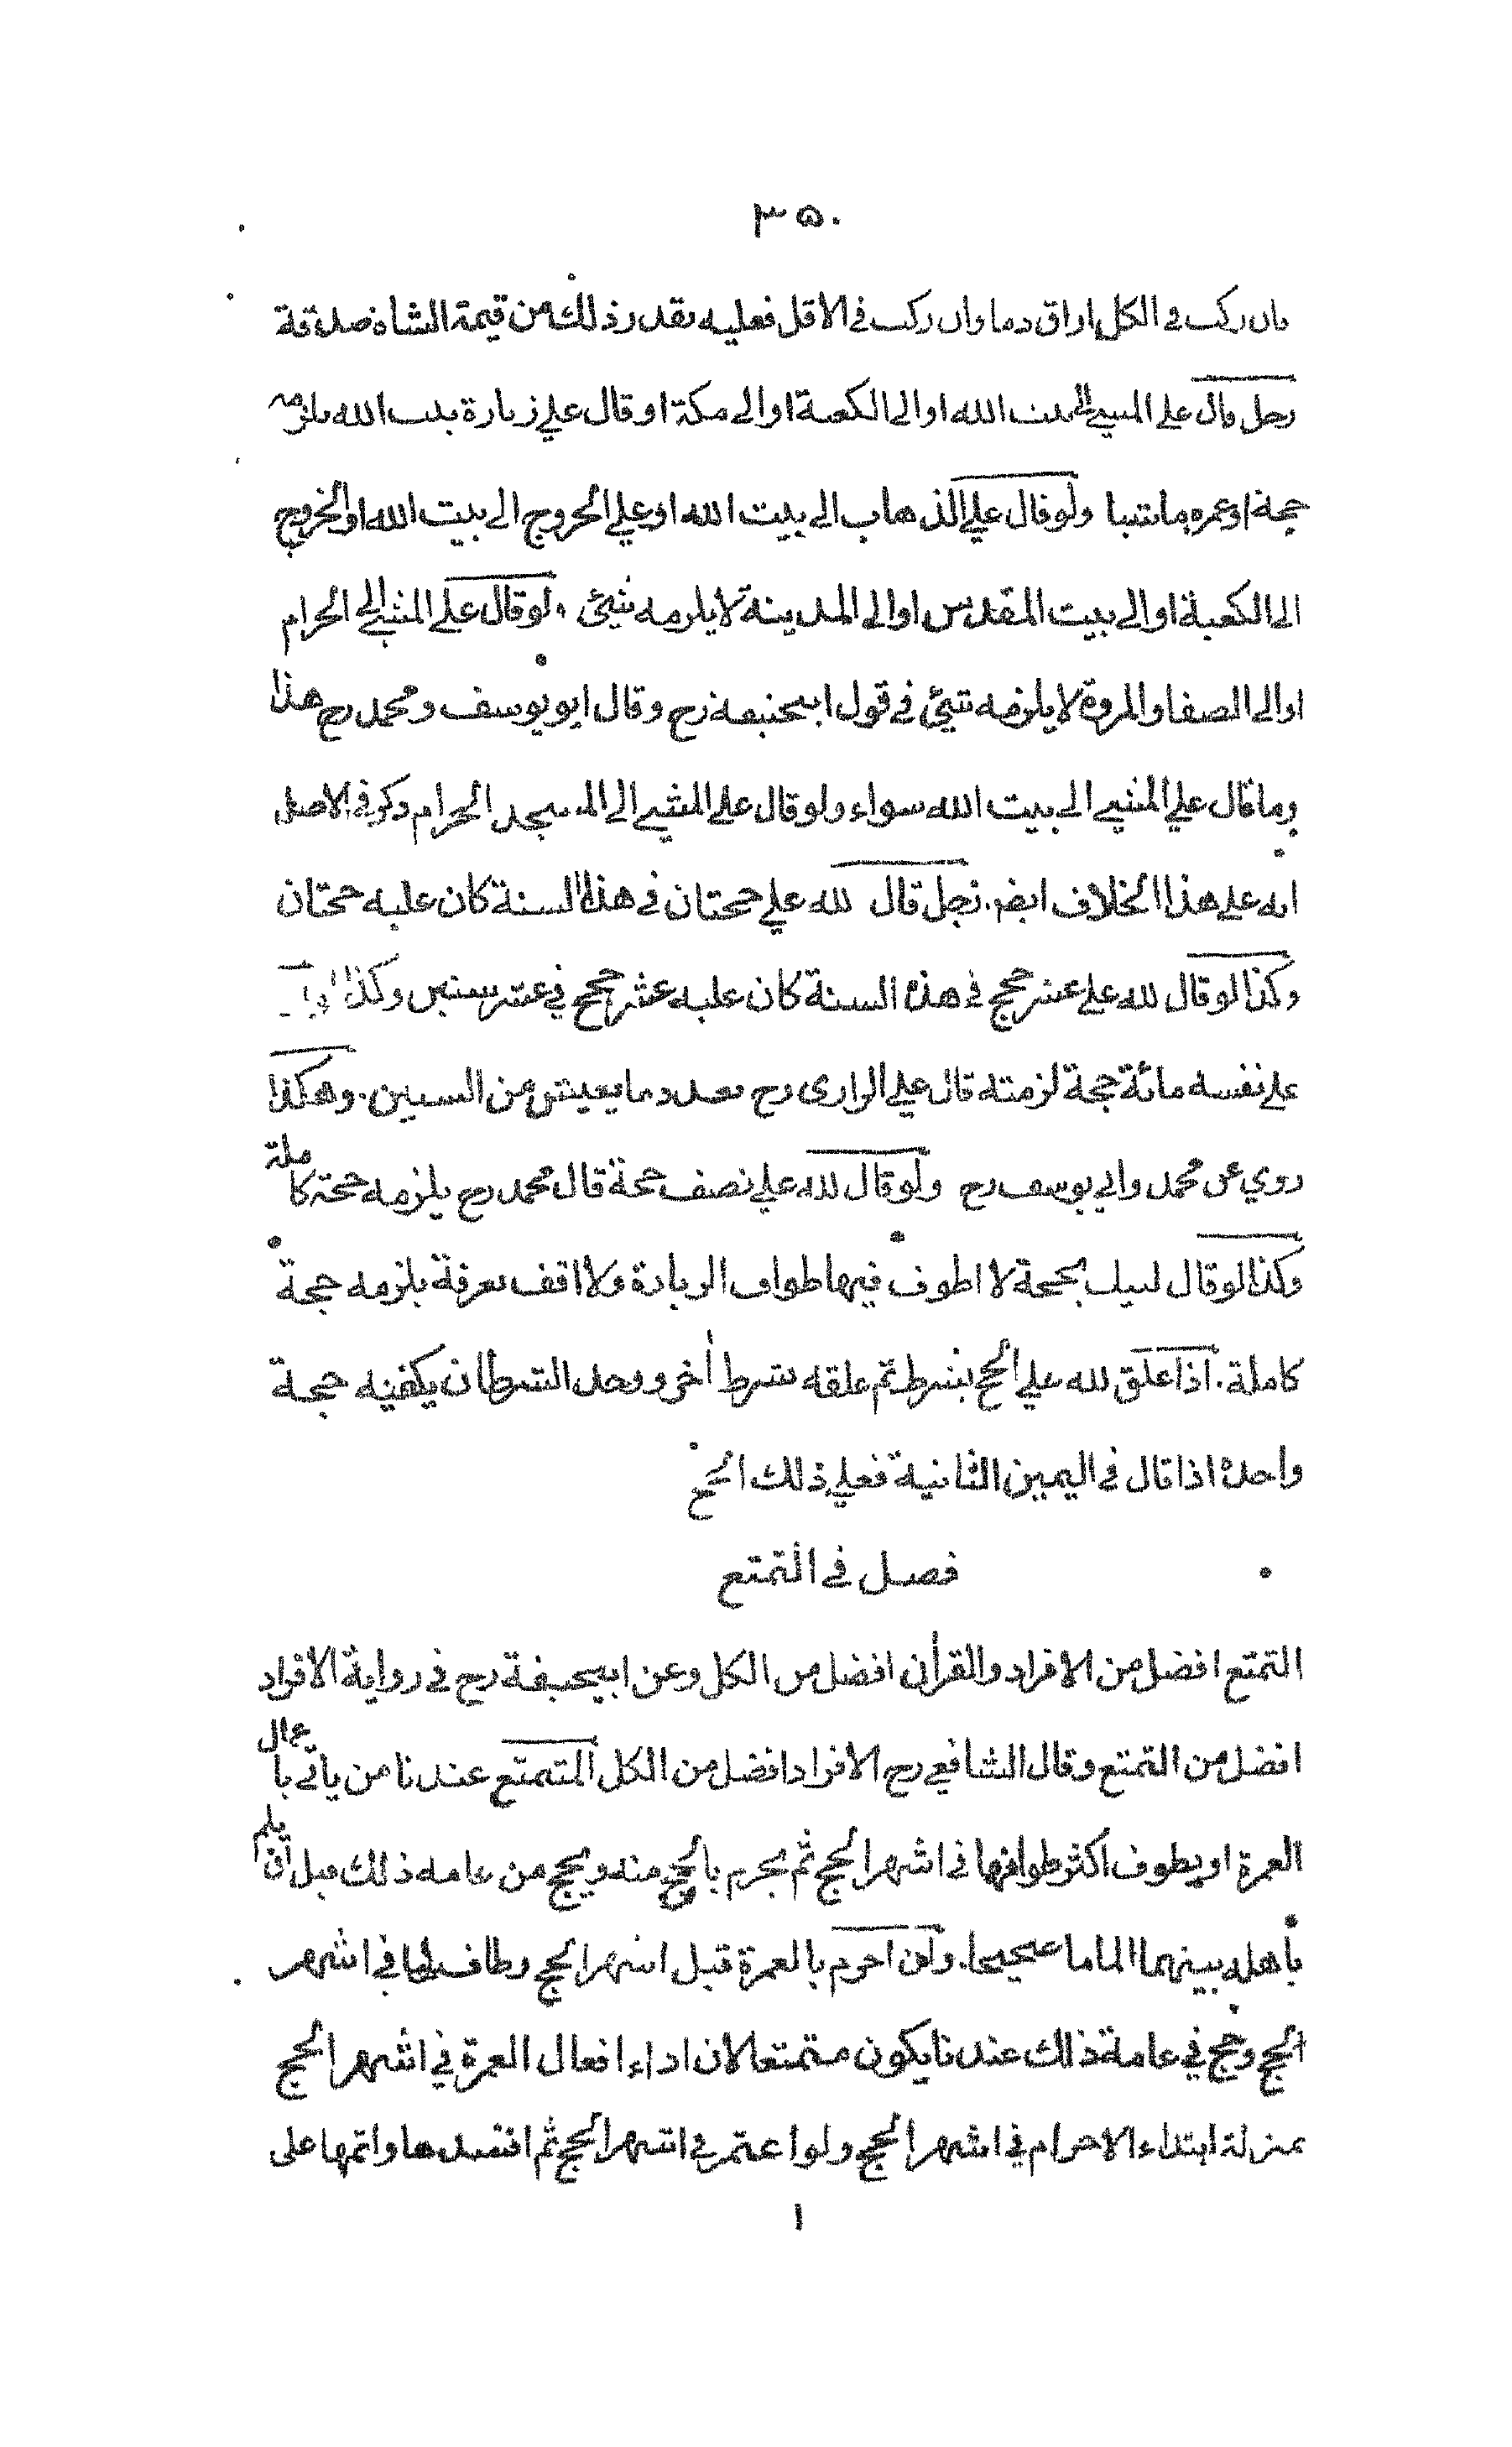 ٣٥٠
فان ركب في الكل اراق دما وان ركب في الاقل فعليه بقدر ذلك من قيمة الشاة صدقة
رجل قال علي المشي الى بيت الله او الى الكعبة او الى مكة او قال علي زيارة بيت الله يلزمه
حجة او عمرة ماشيا ولو قال علي الذهاب الى بيت الله او علي الخروج الى بيت الله او الخروج
الى الكعبة او الى بيت المقدس او الى المدينة لا يلزمه شيئ ، لو قال علي المشي الى الحرام
او الى الصفا والمروة لا يلزمه شيئ في قول ابيحنيفة رح وقال ابو يوسف ومحمد رح هذا
وما قال علي المشي الى بيت الله سواء ولو قال علي المشي الى المسجد الحرام ذكر في الاصل
انه على هذا الخلاف ايضا . رجل قال لله علي حجتان في هذه السنة كان عليه حجتان
وكذا لو قال لله علي عشر حجج في هذه السنة كان عليه عشر حجج في عشر سنين وكذا
على نفسه مائة حجة لزمته قال علي الرازى رح بعدد ما يعيش من السنين . وهكذا
روي عن محمد وابي يوسف رح ولو قال لله علي نصف حجة قال محمد رح يلزمه حجة كاملة
وكذا لو قال لبيك بحجة لا اطوف فيها طواف الزيارة ولا اقف بعرفة يلزمه حجة
كاملة . اذا علق لله علي الحج بشرط ثم علقه بشرط أخر ووجد الشرطان يكفيه حجة
واحدة اذا قال في اليمين الثانية فعلي ذلك الحج
فصل في التمتع
التمتع افضل من الافراد والقرأن افضل من الكل وعن ابيحنيفة رح في رواية الافراد
افضل من التمتع وقال الشافعي رح الافراد افضل من الكل المتمتع عندنا من ياتي بافعال
العمرة او يطوف اكثر طوافها في اشهر الحج ثم يحرم بالحج منه ويحج من عامه ذلك قبل ان يلم
بأهله بينهما الماما صحيحا . ولو احرم بالعمرة قبل اشهر الحج وطاف لها في اشهر
الحج وحج في عامة ذلك عندنا يكون متمتعا لان اداء افعال العمرة في اشهر الحج
بمنزلة ابتداء الاحرام في اشهر الحج ولو اعتمر في اشهر الحج ثم افسدها واتمها على
ا